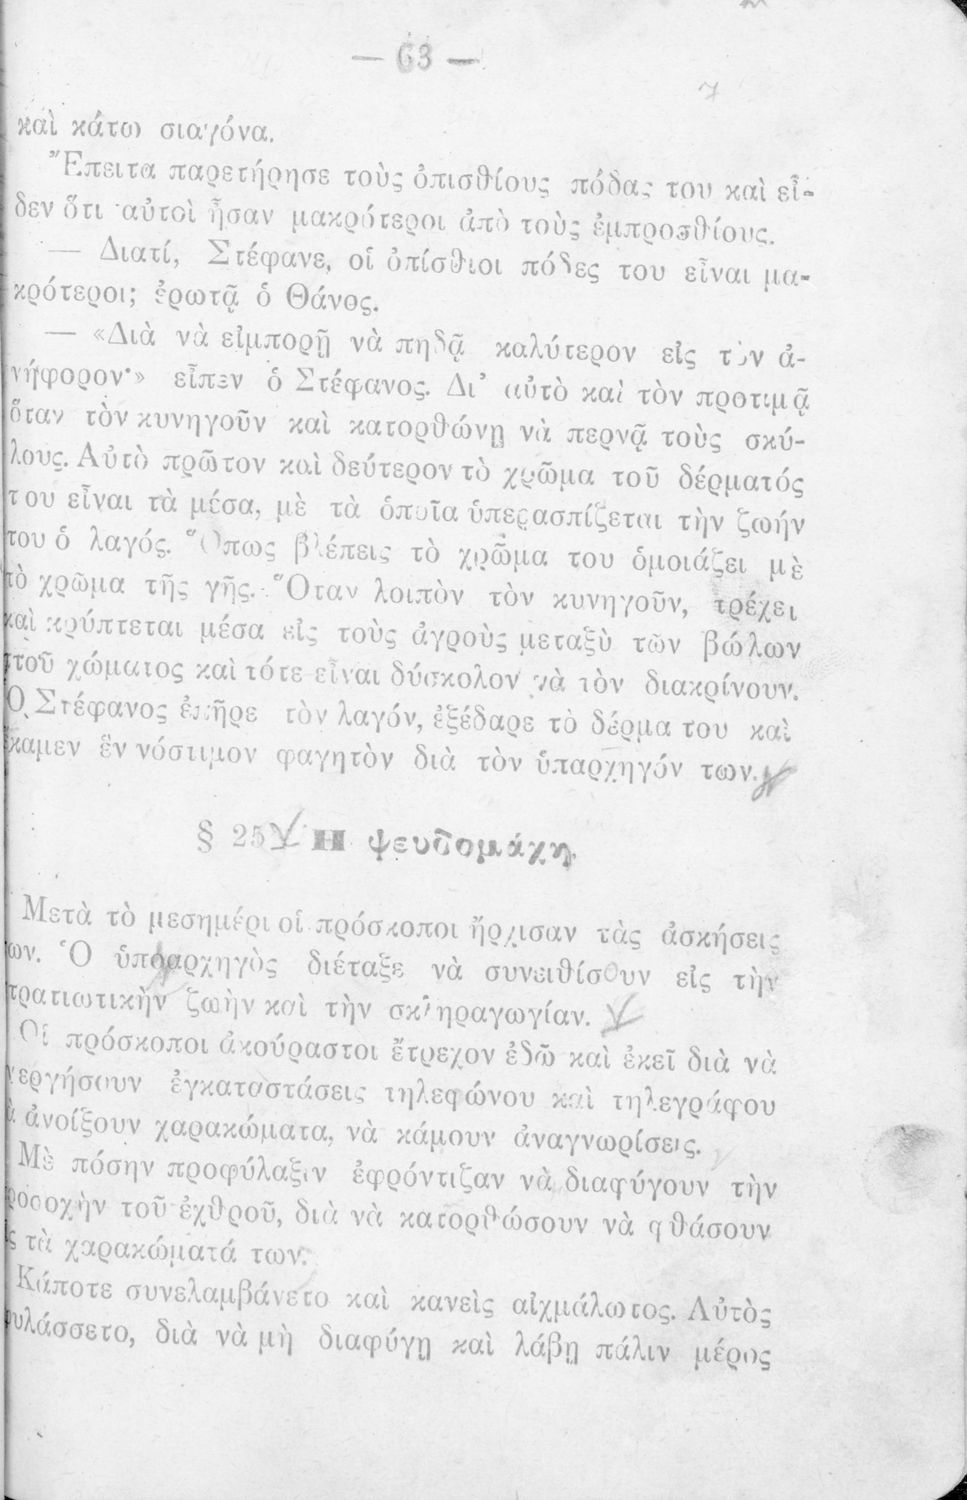 — 63 —
καὶ κάτω σιαγόνα.
Ἔπειτα παρετήρησε τοὺς ὀπισθίους πόδας του καὶ εἶ-
δεν ὅτι αὐτοὶ ἦσαν μακρότεροι ἀπὸ τοὺς ἐμπροσθίους.
— Διατί, Στέφανε, οἱ ὀπίσθιοι πόδες του εἶναι μα-
κρότεροι; ἐρωτᾷ ὁ Θάνος.
— «Διὰ νὰ εἰμπορῇ νὰ πηδᾷ καλύτερον εἰς τὸν ἀ-
νήφορον·» εἶπεν ὁ Στέφανος. Δι' αὐτὸ καὶ τὸν προτιμᾷ
ὅταν τὸν κυνηγοῦν καὶ κατορθώνῃ νὰ περνᾷ τοὺς σκύ-
λους. Αὐτὸ πρῶτον καὶ δεύτερον τὸ χρῶμα τοῦ δέρματός
του εἶναι τὰ μέσα, μὲ τὰ ὁποῖα ὑπερασπίζεται τὴν ζωήν
του ὁ λαγός. Ὅπως βλέπεις τὸ χρῶμα του ὁμοιάζει μὲ
τὸ χρῶμα τῆς γῆς. Ὅταν λοιπὸν τὸν κυνηγοῦν, τρέχει
καὶ κρύπτεται μέσα εἰς τοὺς ἀγροὺς μεταξὺ τῶν βώλων
τοῦ χώματος καὶ τότε εἶναι δύσκολον νὰ τὸν διακρίνουν.
Ὁ Στέφανος ἐπῆρε τὸν λαγόν, ἐξέδαρε τὸ δέρμα του καὶ
ἔκαμεν ἓν νόστιμον φαγητὸν διὰ τὸν ὑπαρχηγόν των.
§ 25 Η ψευδομάχη
Μετὰ τὸ μεσημέρι οἱ πρόσκοποι ἤρχισαν τὰς ἀσκήσεις
των. Ὁ ὑπαρχηγὸς διέταξε νὰ συνειθίσουν εἰς τὴν
στρατιωτικὴν ζωὴν καὶ τὴν σκληραγωγίαν.
Οἱ πρόσκοποι ἀκούραστοι ἔτρεχον ἐδῶ καὶ ἐκεῖ διὰ νὰ
νεργήσουν ἐγκαταστάσεις τηλεφώνου καὶ τηλεγράφου
ὰ ἀνοίξουν χαρακώματα, νὰ κάμουν ἀναγνωρίσεις.
Μὲ πόσην προφύλαξιν ἐφρόντιζαν νὰ διαφύγουν τὴν
προσοχὴν τοῦ ἐχθροῦ, διὰ νὰ κατορθώσουν νὰ φθάσουν
ς τὰ χαρακώματά των.
Κάποτε συνελαμβάνετο καὶ κανεὶς αἰχμάλωτος. Αὐτὸς
φυλάσσετο, διὰ νὰ μὴ διαφύγῃ καὶ λάβῃ πάλιν μέρος